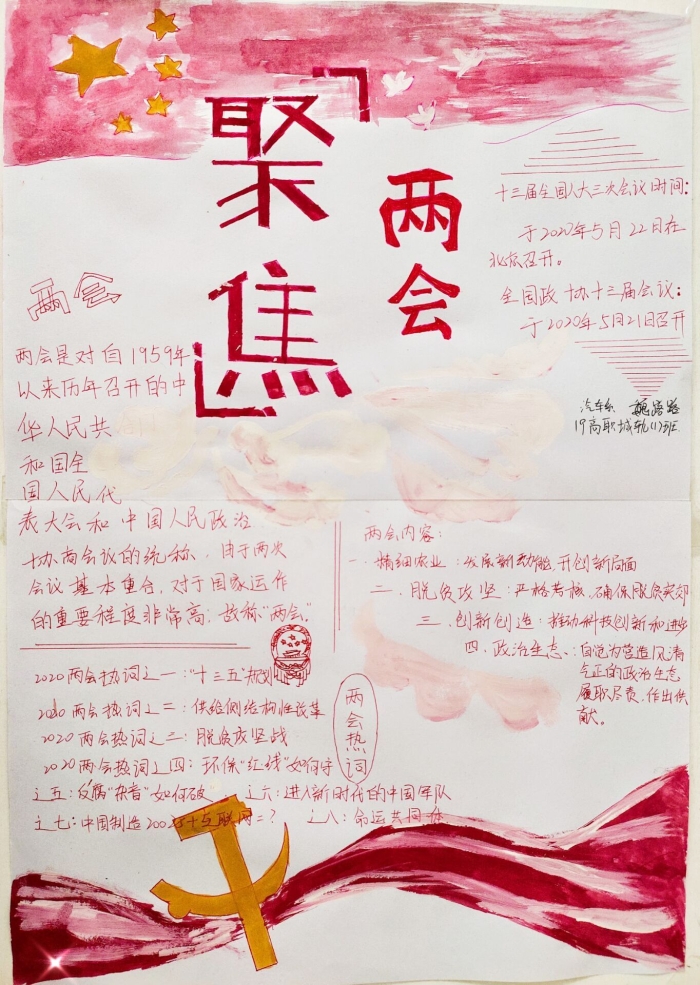 「聚焦」
两会
十三届全国人大三次会议时间:
于2020年5月22日在
北京召开。
全国政协十三届会议:
于2020年5月21日召开
汽车系
19高职城轨(1)班
两会
两会是对自1959年
以来历年召开的中
华人民共
和国全
国人民代
表大会和中国人民政治
协商会议的统称。由于两次
会议基本重合,对于国家运作
的重要程度非常高,故称“两会”
两会内容:
一、精细农业:发展新动能,开创新局面
二、脱贫攻坚:严格考核,确保脱贫实效
三、创新创造:推动科技创新和进步
四、政治生态:自觉为营造风清
气正的政治生态
履职尽责,作出贡
献。
2020两会热词之一:“十三五”规划
2020两会热词之二:供给侧结构性改革
2020两会热词之三:脱贫攻坚战
2020两会热词之四:环保“红线”如何守
之五:反腐“杂音”如何破
之六:进入新时代的中国军队
之七:中国制造2025+互联网=?
之八:命运共同体
两会热词